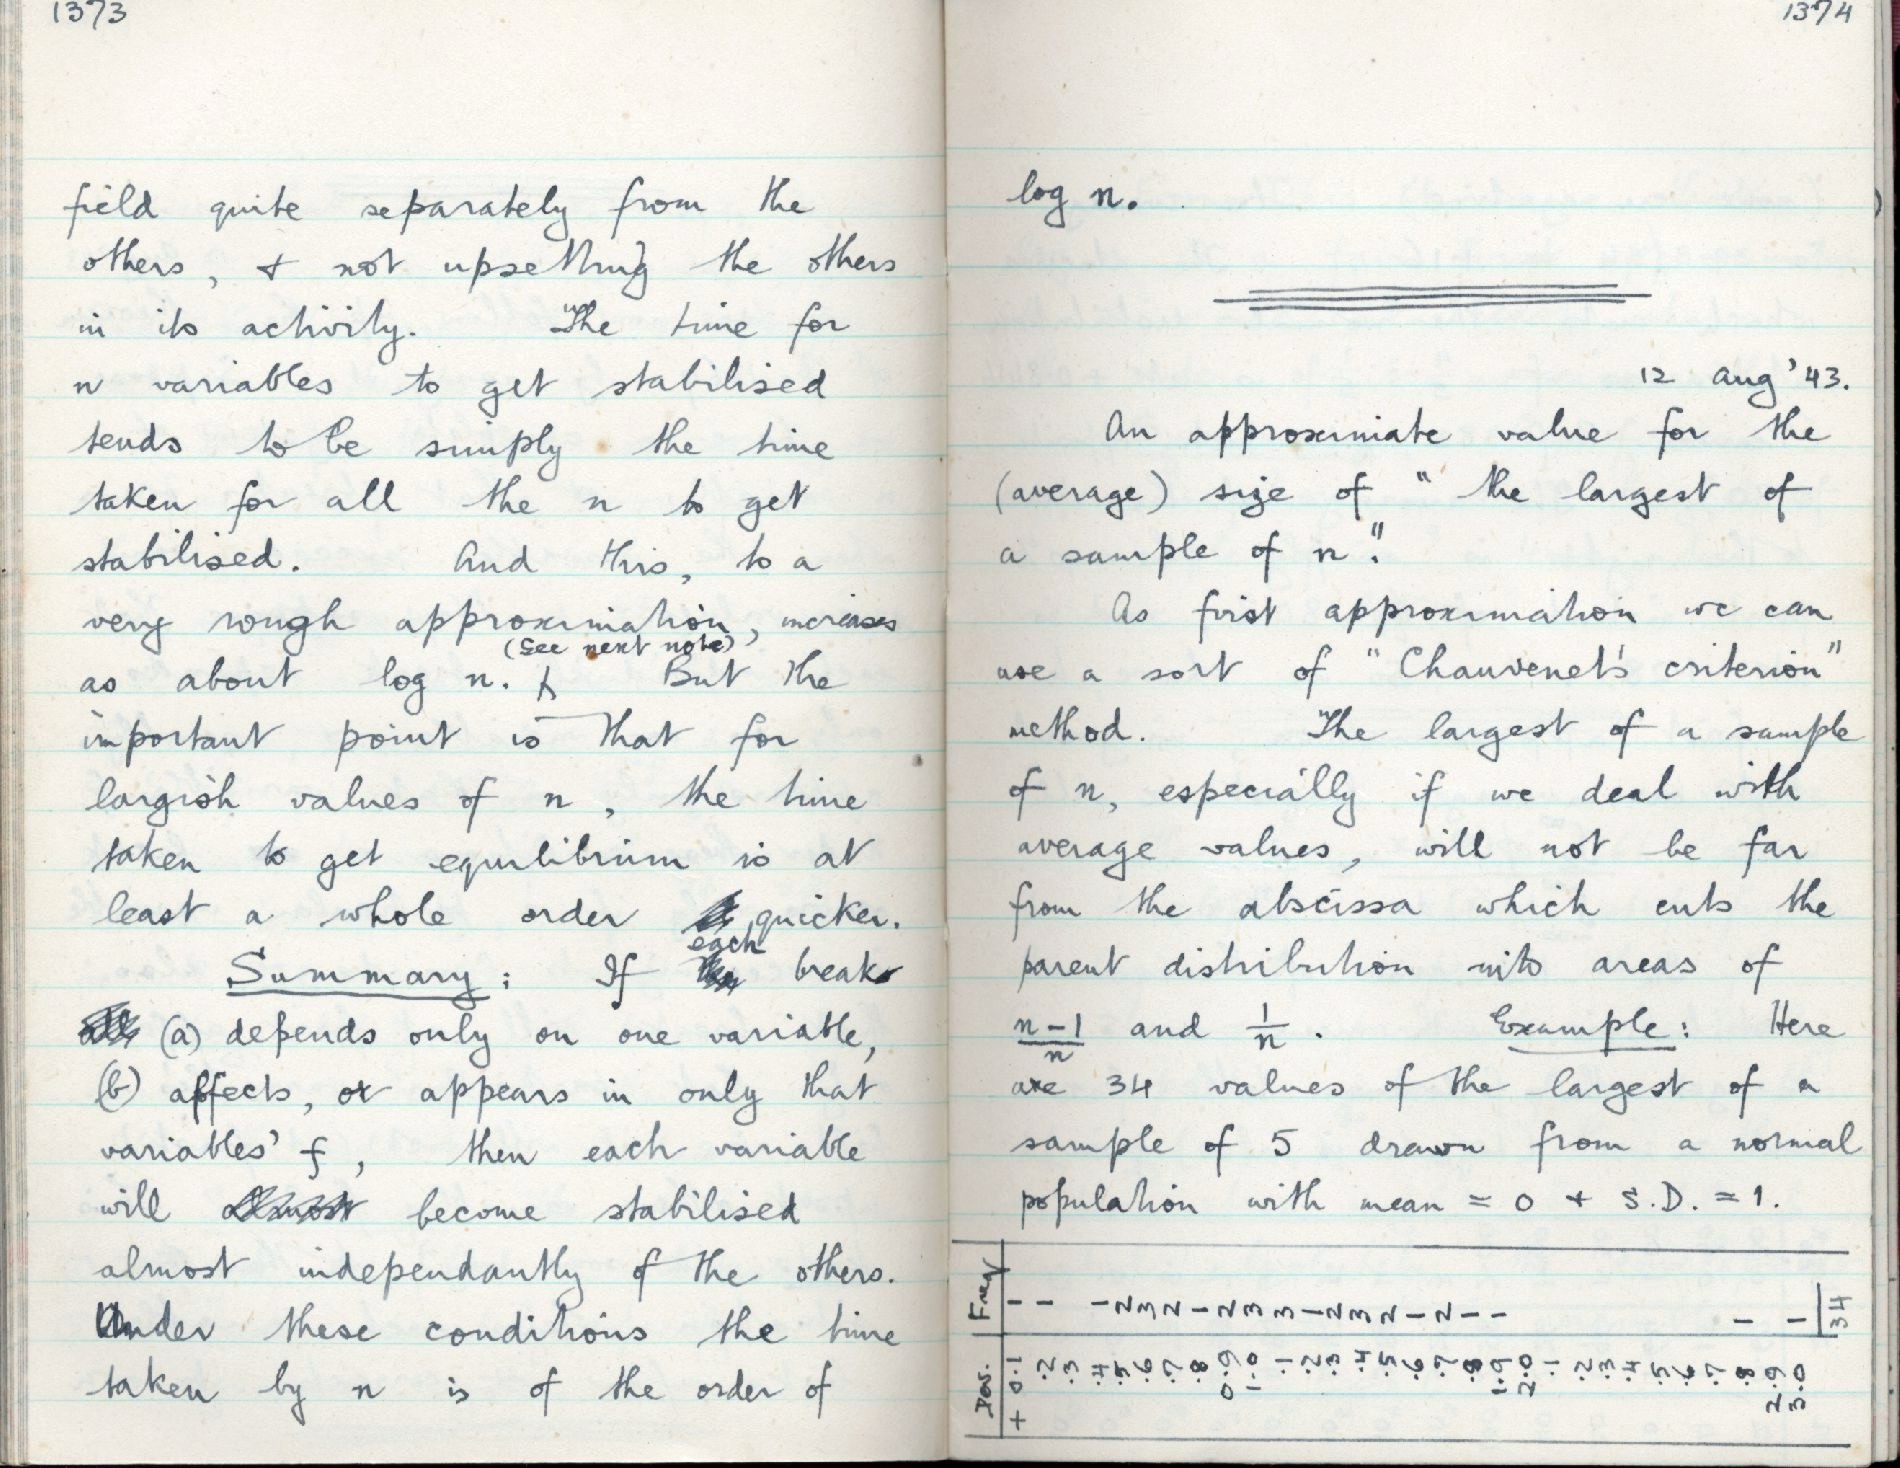 1373
field quite separately from the
others, & not upsetting the others
in its activity. The time for
n variables to get stabilised
tends to be simply the time
taken for all the n to get
stabilised. And this, to a
very rough approximation, increases
(See next note)
as about log n. But the
important point is that for
largish values of n, the time
taken to get equilibrium is at
least a whole order quicker.
Summary: If each break
(a) depends only on one variable,
(b) affects, or appears in only that
variables' f, then each variable
will become stabilised
almost independantly of the others.
Under these conditions the time
taken by n is of the order of
1374
log n.
12 Aug '43.
An approximate value for the
(average) size of "the largest of
a sample of n".
As first approximation we can
use a sort of "Chauvenet's criterion"
method. The largest of a sample
of n, especially if we deal with
average values, will not be far
from the abscissa which cuts the
parent distribution into areas of
n-1/n and 1/n. Example: Here
are 34 values of the largest of a
sample of 5 drawn from a normal
population with mean = 0 & S.D. = 1.
Dev. Freq
+ 0.1 1
.2 1
.3
.4 1
.5 2
.6 3
.7 2
.8 1
0.9 2
1.0 3
.1 3
.2 1
.3 2
.4 3
.5 2
.6 1
.7 2
.8 1
1.9 1
2.0
.1
.2
.3
.4
.5
.6
.7
.8 1
2.9
3.0 1
34